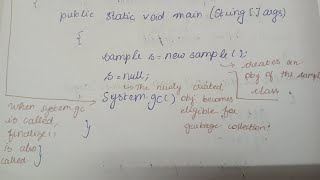 public static void main (String [] args)
{
sample s = new sample ();
creates an
obj of the sampl
class
s = null;
the newly created
System.gc()
obj becomes
eligible for
garbage collection!
when system.gc
is called,
finalize()
is also
called
}
}